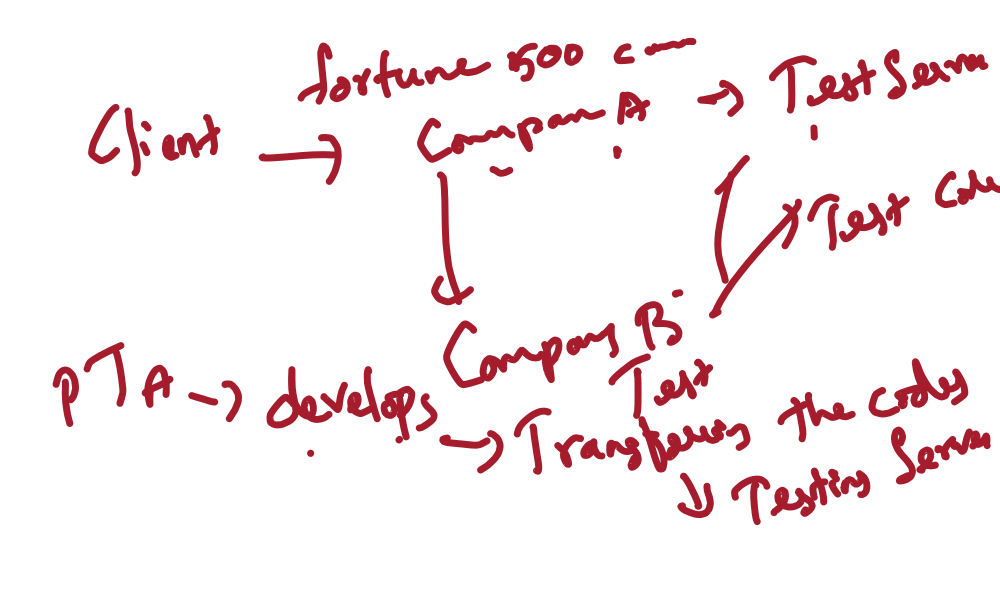 fortune 500 c
Client → Company A → Test Server
Test Code
Company B
PTA → develops → Transfers the codes
Test
↓ Testing Server